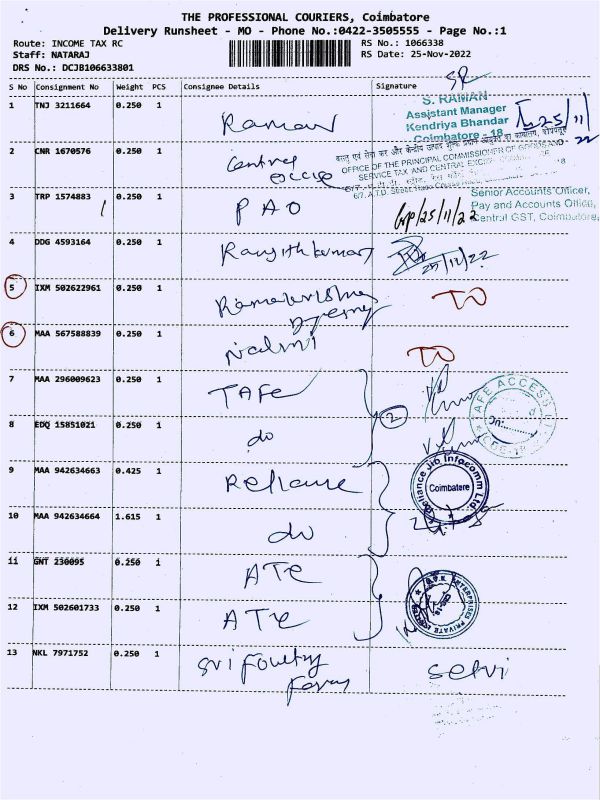 THE PROFESSIONAL COURIERS, Coimbatore
Delivery Runsheet - MO - Phone No.:0422-3505555 - Page No.:1
Route: INCOME TAX RC
RS No.: 1066338
Staff: NATARAJ
RS Date: 25-Nov-2022
DRS No.: DCJB106633801
S No Consignment No Weight PCS Consignee Details Signature
1 TNJ 3211664 0.250 1 Raman
S. RAMAN
Assistant Manager
Kendriya Bhandar
Coimbatore - 18
25/11/22
2 CNR 1670576 0.250 1 Central Excise
OFFICE OF THE PRINCIPAL COMMISSIONER OF GOODS AND
SERVICE TAX AND CENTRAL EXCISE
3 TRP 1574883 0.250 1 PAO
25/11/22
Senior Accounts Officer,
Pay and Accounts Office,
Central GST, Coimbatore
4 DDG 4593164 0.250 1 Ranjithkumar
25/11/22
5 IXM 502622961 0.250 1 Ramakrishna
TO
6 MAA 567588839 0.250 1
TO
7 MAA 296009623 0.250 1 TAFe
2
8 EDQ 15851021 0.250 1 do
9 MAA 942634663 0.425 1 Reliance
Reliance Jio Infocomm Ltd.
Coimbatore
10 MAA 942634664 1.615 1 do
11 GNT 230095 0.250 1 ATE
12 IXM 502601733 0.250 1 ATE
ENTERPRISES PRIVATE LIMITED
13 NKL 7971752 0.250 1 Sri Poultry Farm
Selvi